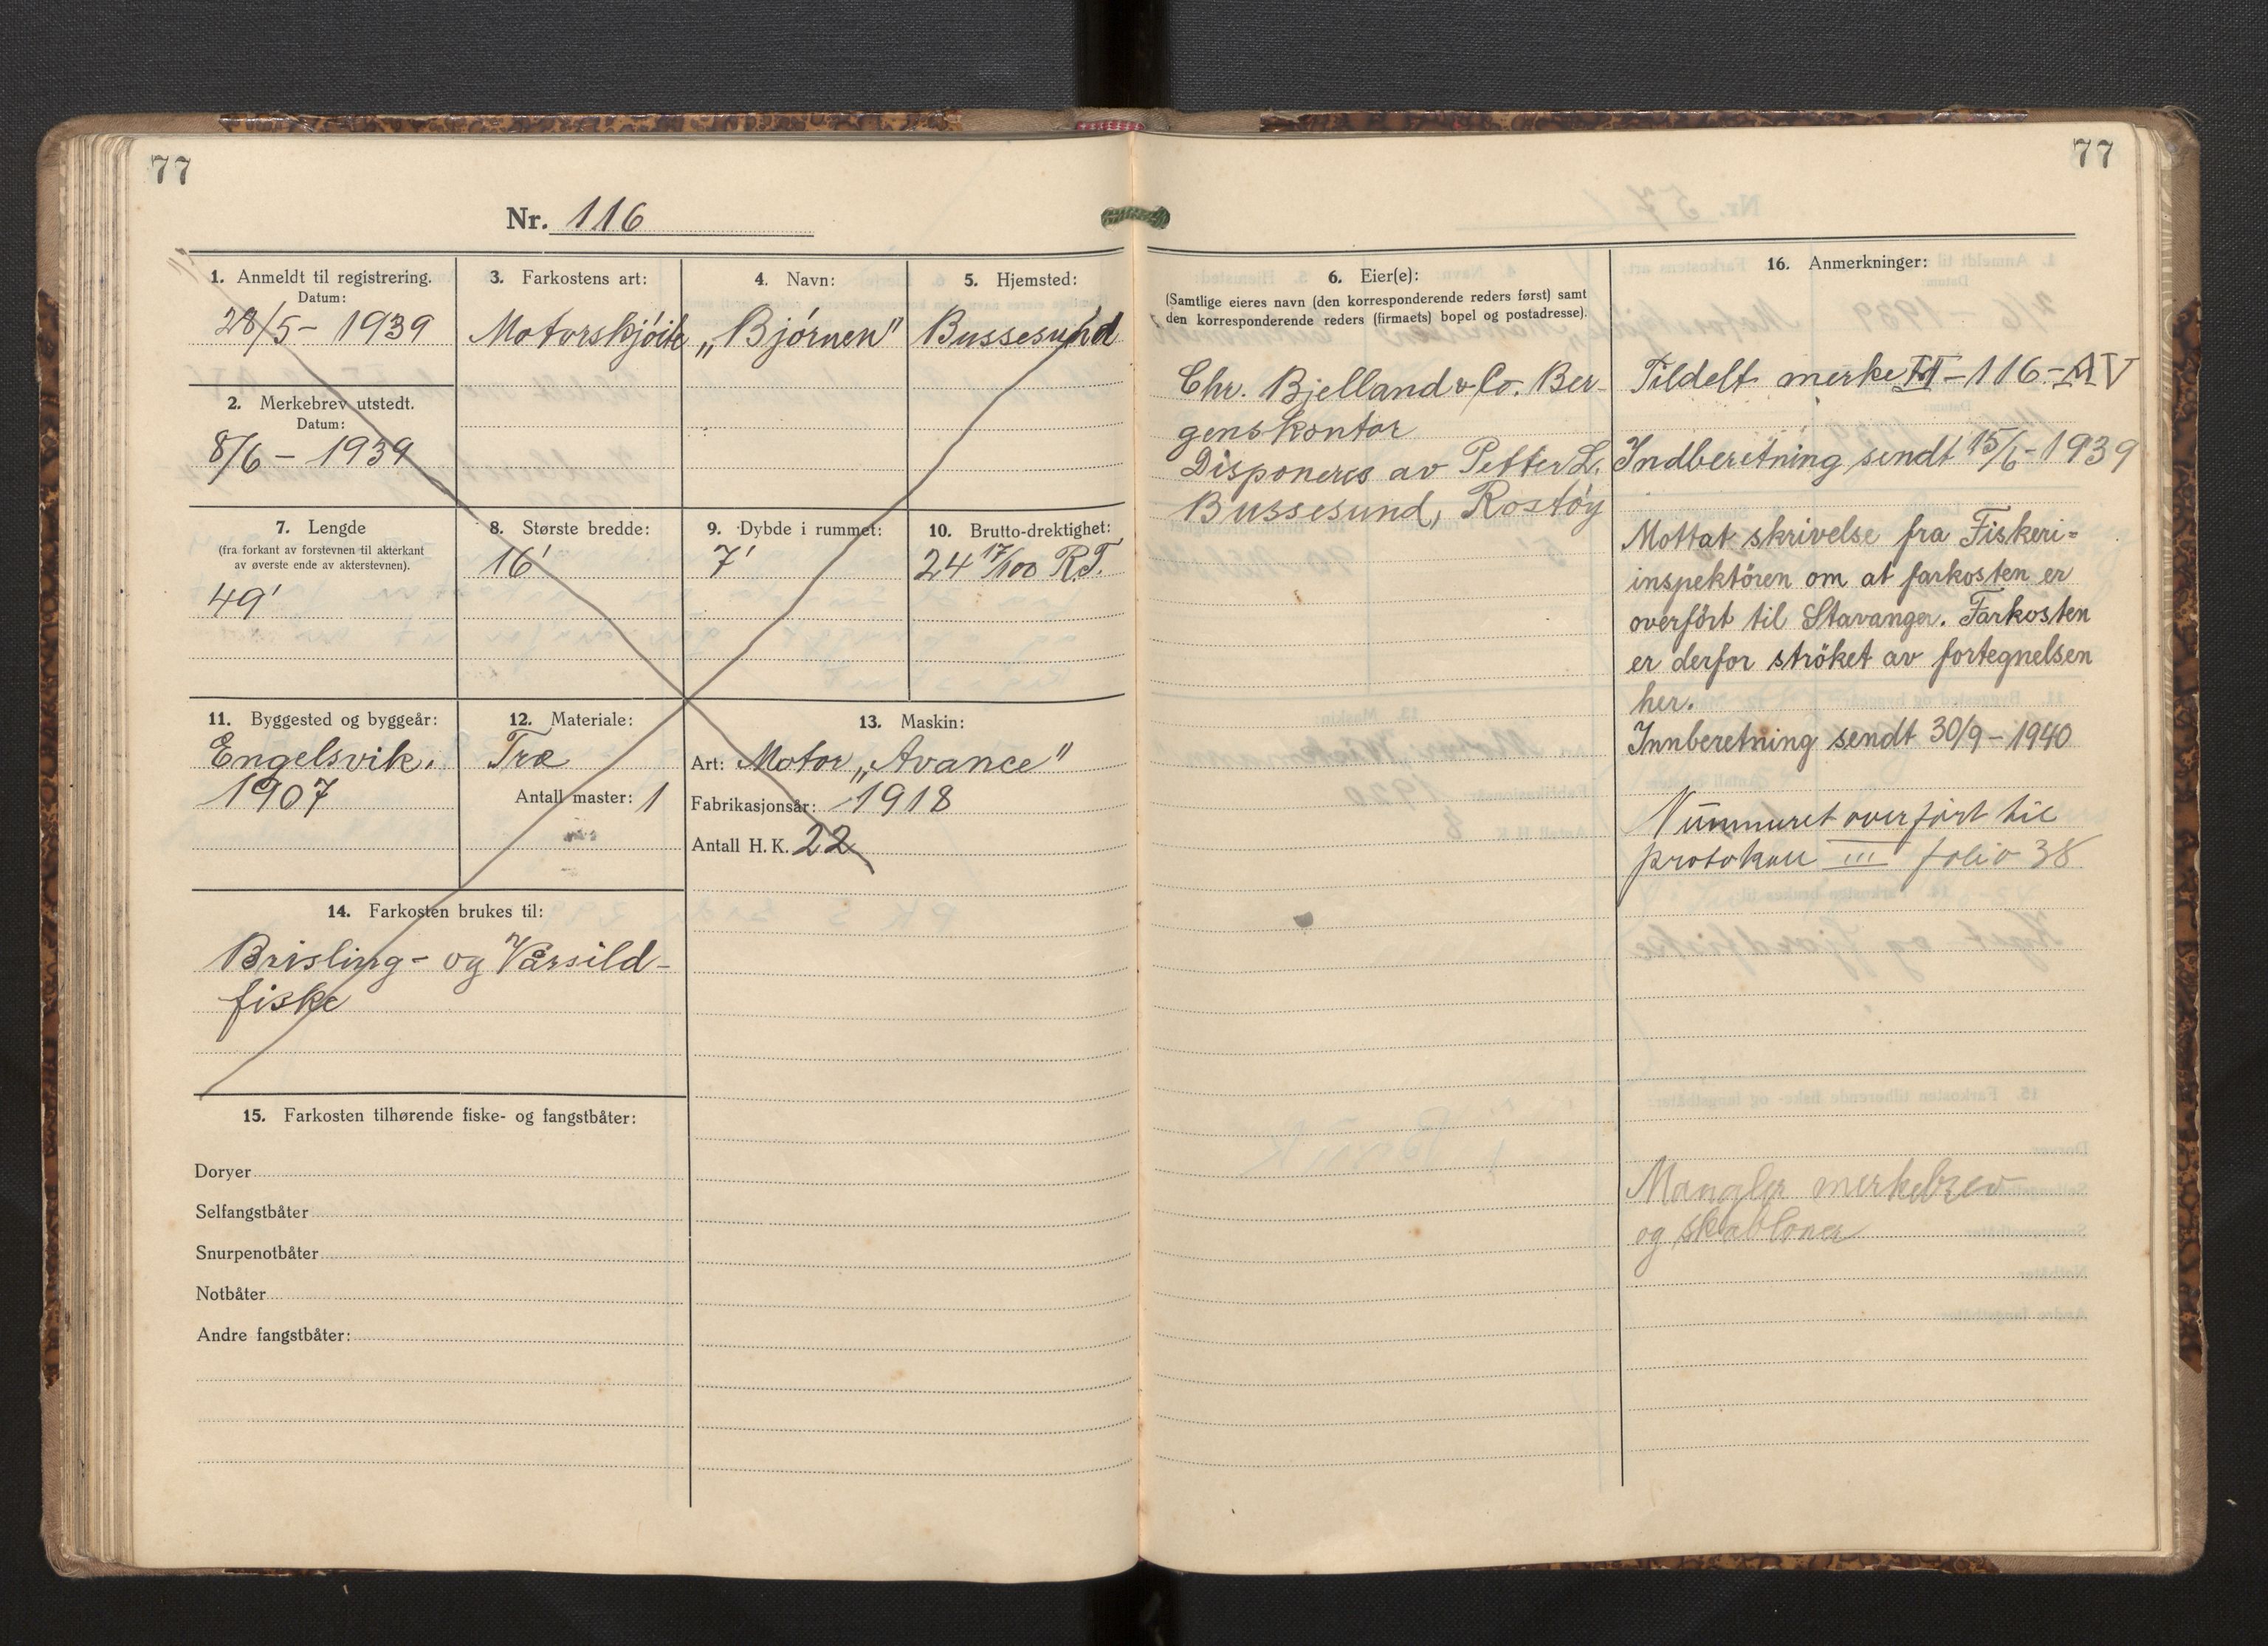 77
Nr. 116
1. Anmeldt til registrering.
Datum:
28/5 - 1939
2. Merkebrev utstedt.
Datum:
8/6 - 1939
3. Farkostens art:
Motorskjöite
4. Navn:
„Björnen"
5. Hjemsted:
Bussesund
7. Lengde
(fra forkant av forstevnen til akterkant
av øverste ende av akterstevnen).
49'
8. Største bredde:
16'
9. Dybde i rummet:
7'
10. Brutto-drektighet:
24 17/100 R.T.
11. Byggested og byggeår:
Engelsvik.
1907
12. Materiale:
Træ
Antall master: 1
13. Maskin:
Art: Motor „Avance"
Fabrikasjonsår: 1918
Antall H. K. 22
14. Farkosten brukes til:
Brisling- og Vårsild-
fiske
15. Farkosten tilhørende fiske- og fangstbåter:
Doryer
Selfangstbåter
Snurpenotbåter
Notbåter
Andre fangstbåter:
77
6. Eier(e):
(Samtlige eieres navn (den korresponderende reders først) samt
den korresponderende reders (firmaets) bopel og postadresse).
Chr. Bjelland & Co. Ber-
genskontor
Disponeres av Petter L.
Bussesund, Rostöy
16. Anmerkninger:
Tildelt merke - 116 - AV
Indberetning sendt 15/6 - 1939
Mottat skrivelse fra Fiskeri-
inspektören om at farkosten er
overfört til Stavanger. Farkosten
er derfor ströket av fortegnelsen
her.
Innberetning sendt 30/9 - 1940
Nummeret overfört til
protokoll III folio 38
Mangler merkebrev
og skabloner